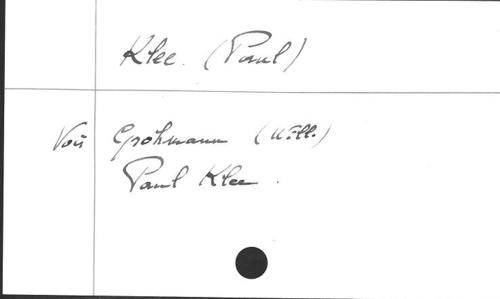 Klee. (Paul)
Voir Grohmann (Will.)
Paul Klee.